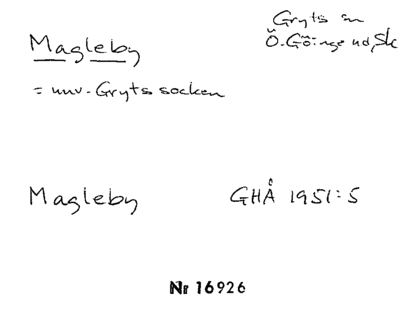 Gryts sn
Magleby
Ö. Göinge hd, Sk
= nuv. Gryts socken
Magleby GHÅ 1951:5
Nr 16926